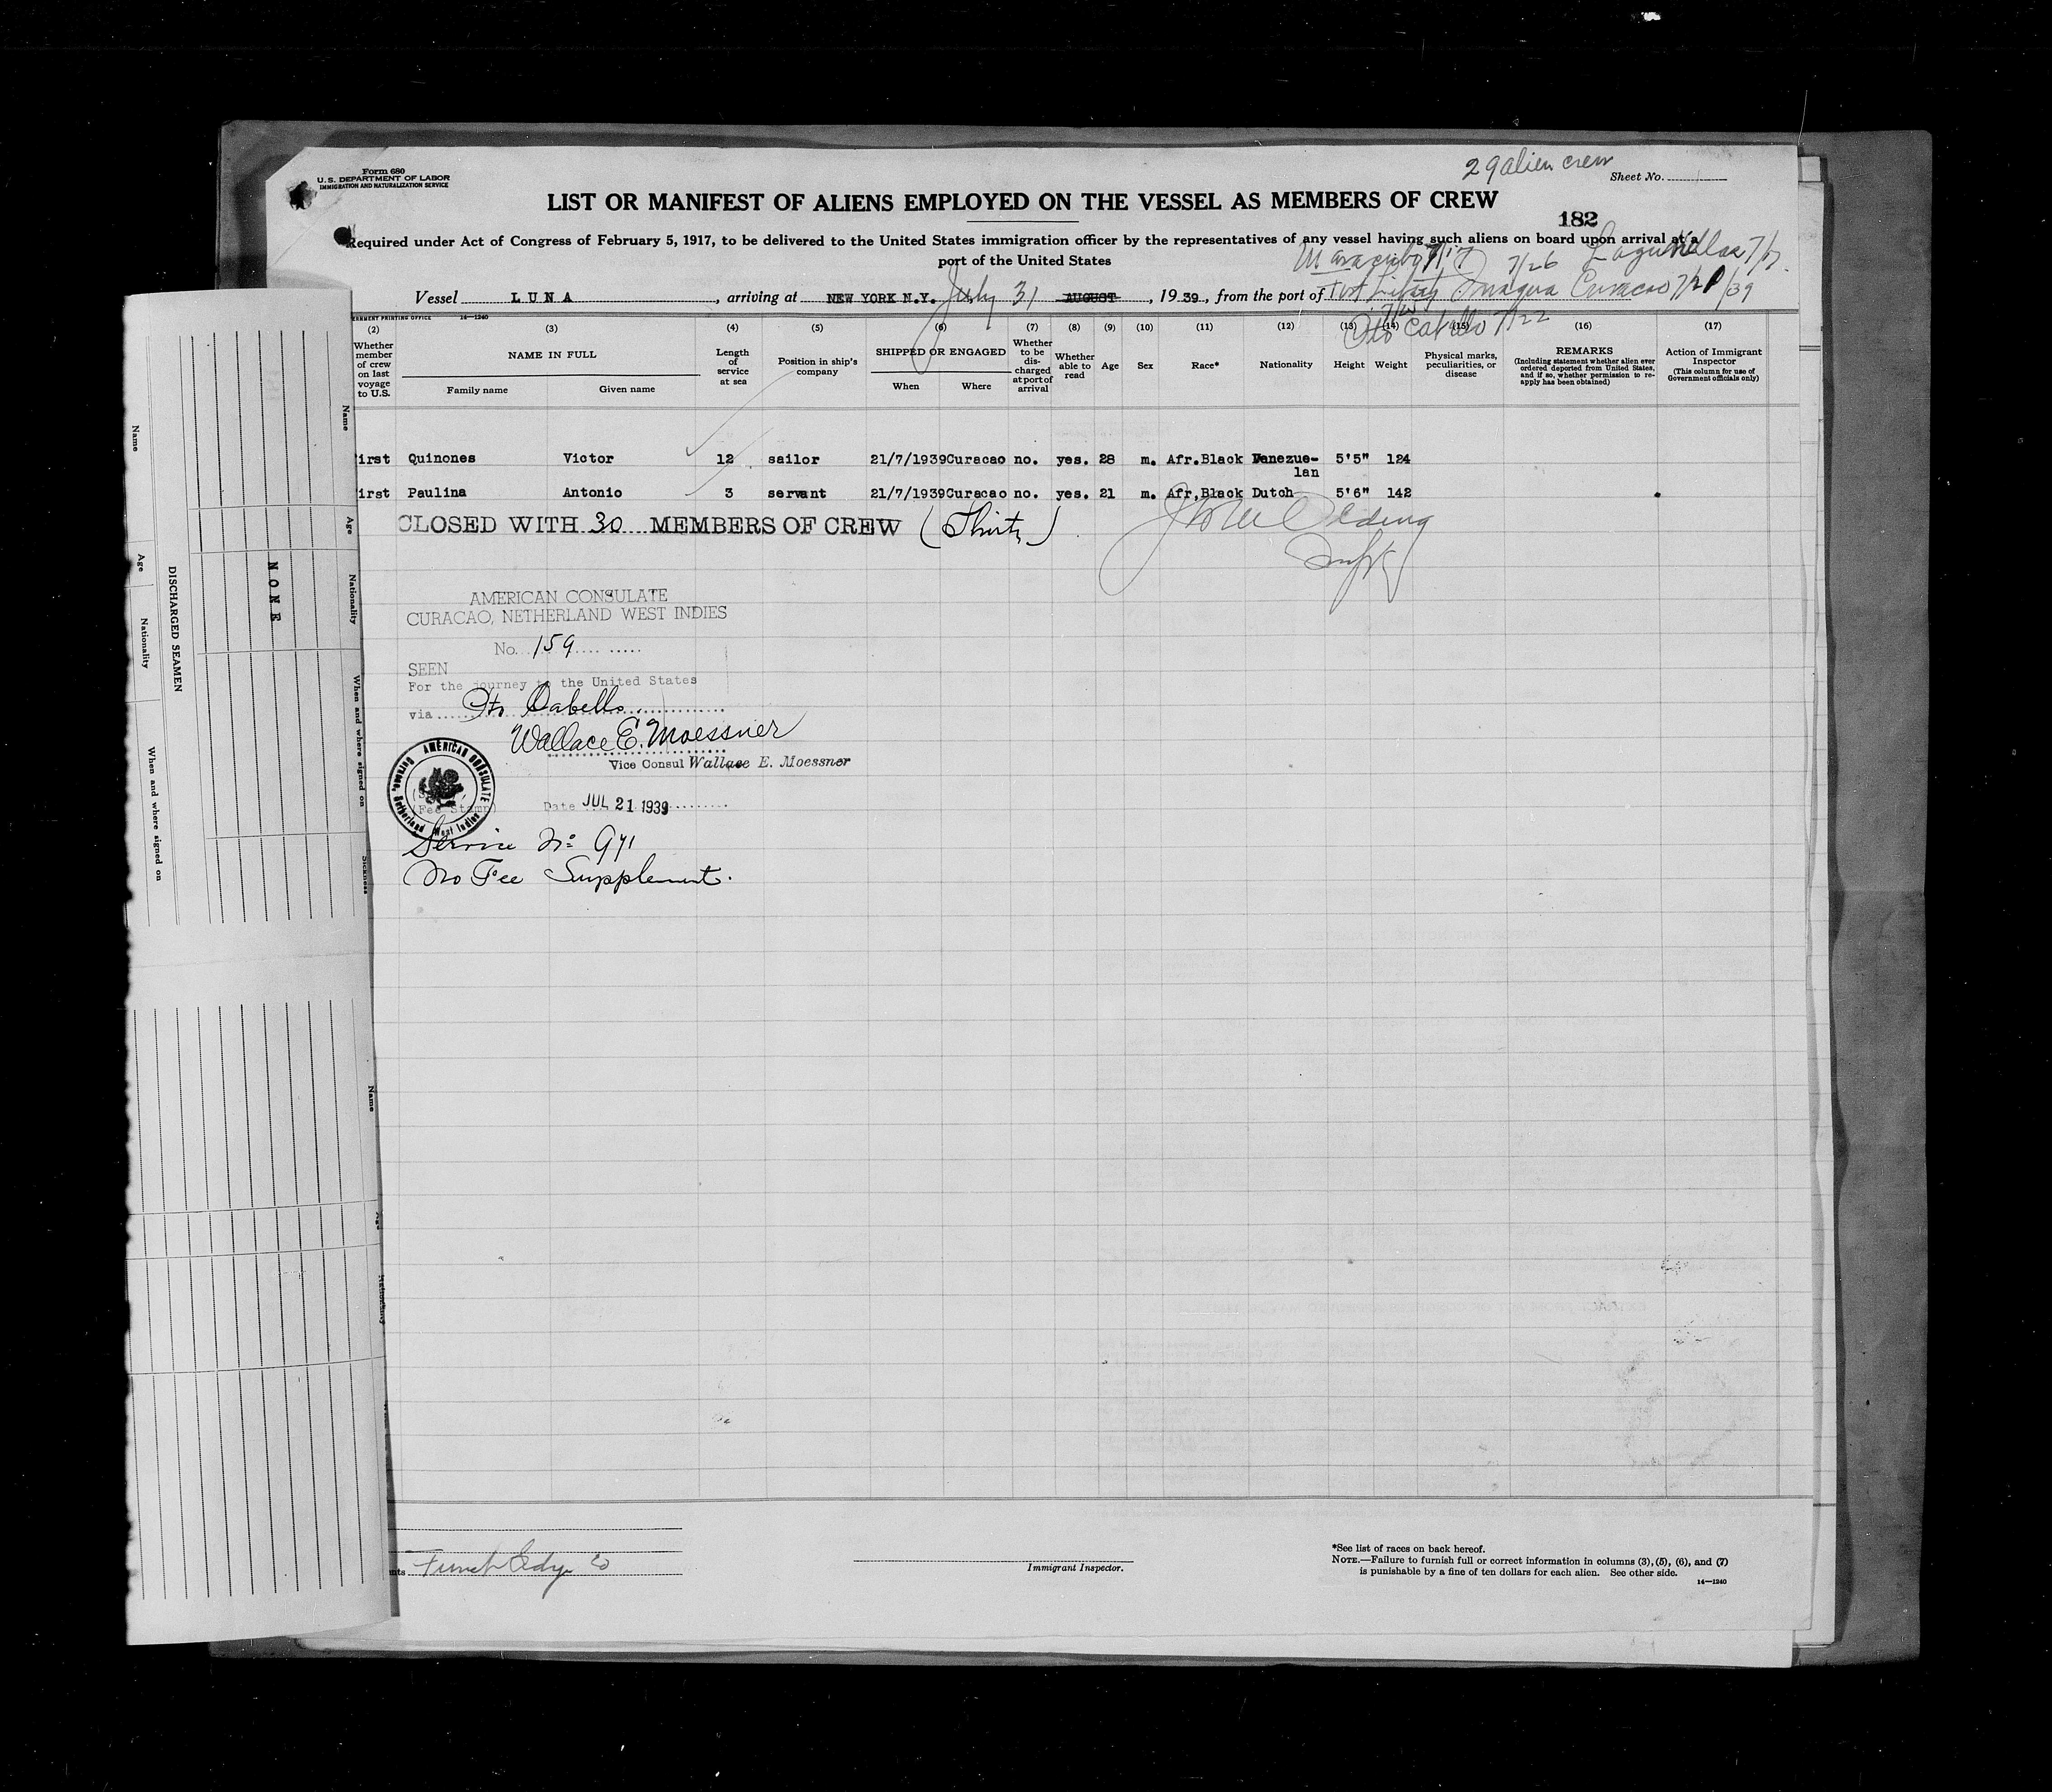 29 alien crew
Form 680
U.S. DEPARTMENT OF LABOR
IMMIGRATION AND NATURALIZATION SERVICE
Sheet No.
LIST OR MANIFEST OF ALIENS EMPLOYED ON THE VESSEL AS MEMBERS OF CREW
182
Required under Act of Congress of February 5, 1917, to be delivered to the United States immigration officer by the representatives of any vessel having such aliens on board upon arrival at a
port of the United States
Maracaibo 7/17 7/26 7/7
Vessel LUNA, arriving at NEW YORK N.Y. July 31 AUGUST, 1939, from the port of Curacao 7/21/39
Pto Cabello 7/22
GOVERNMENT PRINTING OFFICE 14-1240
(2) (3) (4) (5) (6) (7) (8) (9) (10) (11) (12) (13) (14) (15) (16) (17)
Whether member of crew on last voyage to U.S.
NAME IN FULL
Family name Given name
Length of service at sea
Position in ship's company
SHIPPED OR ENGAGED
When Where
Whether to be discharged at port of arrival
Whether able to read
Age
Sex
Race*
Nationality
Height
Weight
Physical marks, peculiarities, or disease
REMARKS
(Including statement whether alien ever ordered deported from United States, and if so, whether permission to reapply has been obtained)
Action of Immigrant Inspector
(This column for use of Government officials only)
irst Quinones Victor 12 sailor 21/7/1939 Curacao no. yes. 28 m. Afr.Black Venezue- 5'5" 124
lan
irst Paulina Antonio 3 servant 21/7/1939 Curacao no. yes. 21 m. Afr.Black Dutch 5'6" 142
CLOSED WITH 30 MEMBERS OF CREW (Thirty)
AMERICAN CONSULATE
CURACAO, NETHERLAND WEST INDIES
No. 159
SEEN
For the journey to the United States
via Pto Cabello
Wallace E. Moessner
Vice Consul Wallace E. Moessner
AMERICAN CONSULATE
Curacao, Netherland West Indies
(Fee Stamp)
Date JUL 21 1939
Service No: 971
No Fee Supplement.
Name
Age
Nationality
When and where signed on
DISCHARGED SEAMEN
NONE
Name
Age
Nationality
When and where signed on
Sickness
Name
Age
Nationality
Immigrant Inspector.
*See list of races on back hereof.
NOTE.—Failure to furnish full or correct information in columns (3), (5), (6), and (7)
is punishable by a fine of ten dollars for each alien. See other side.
14-1240